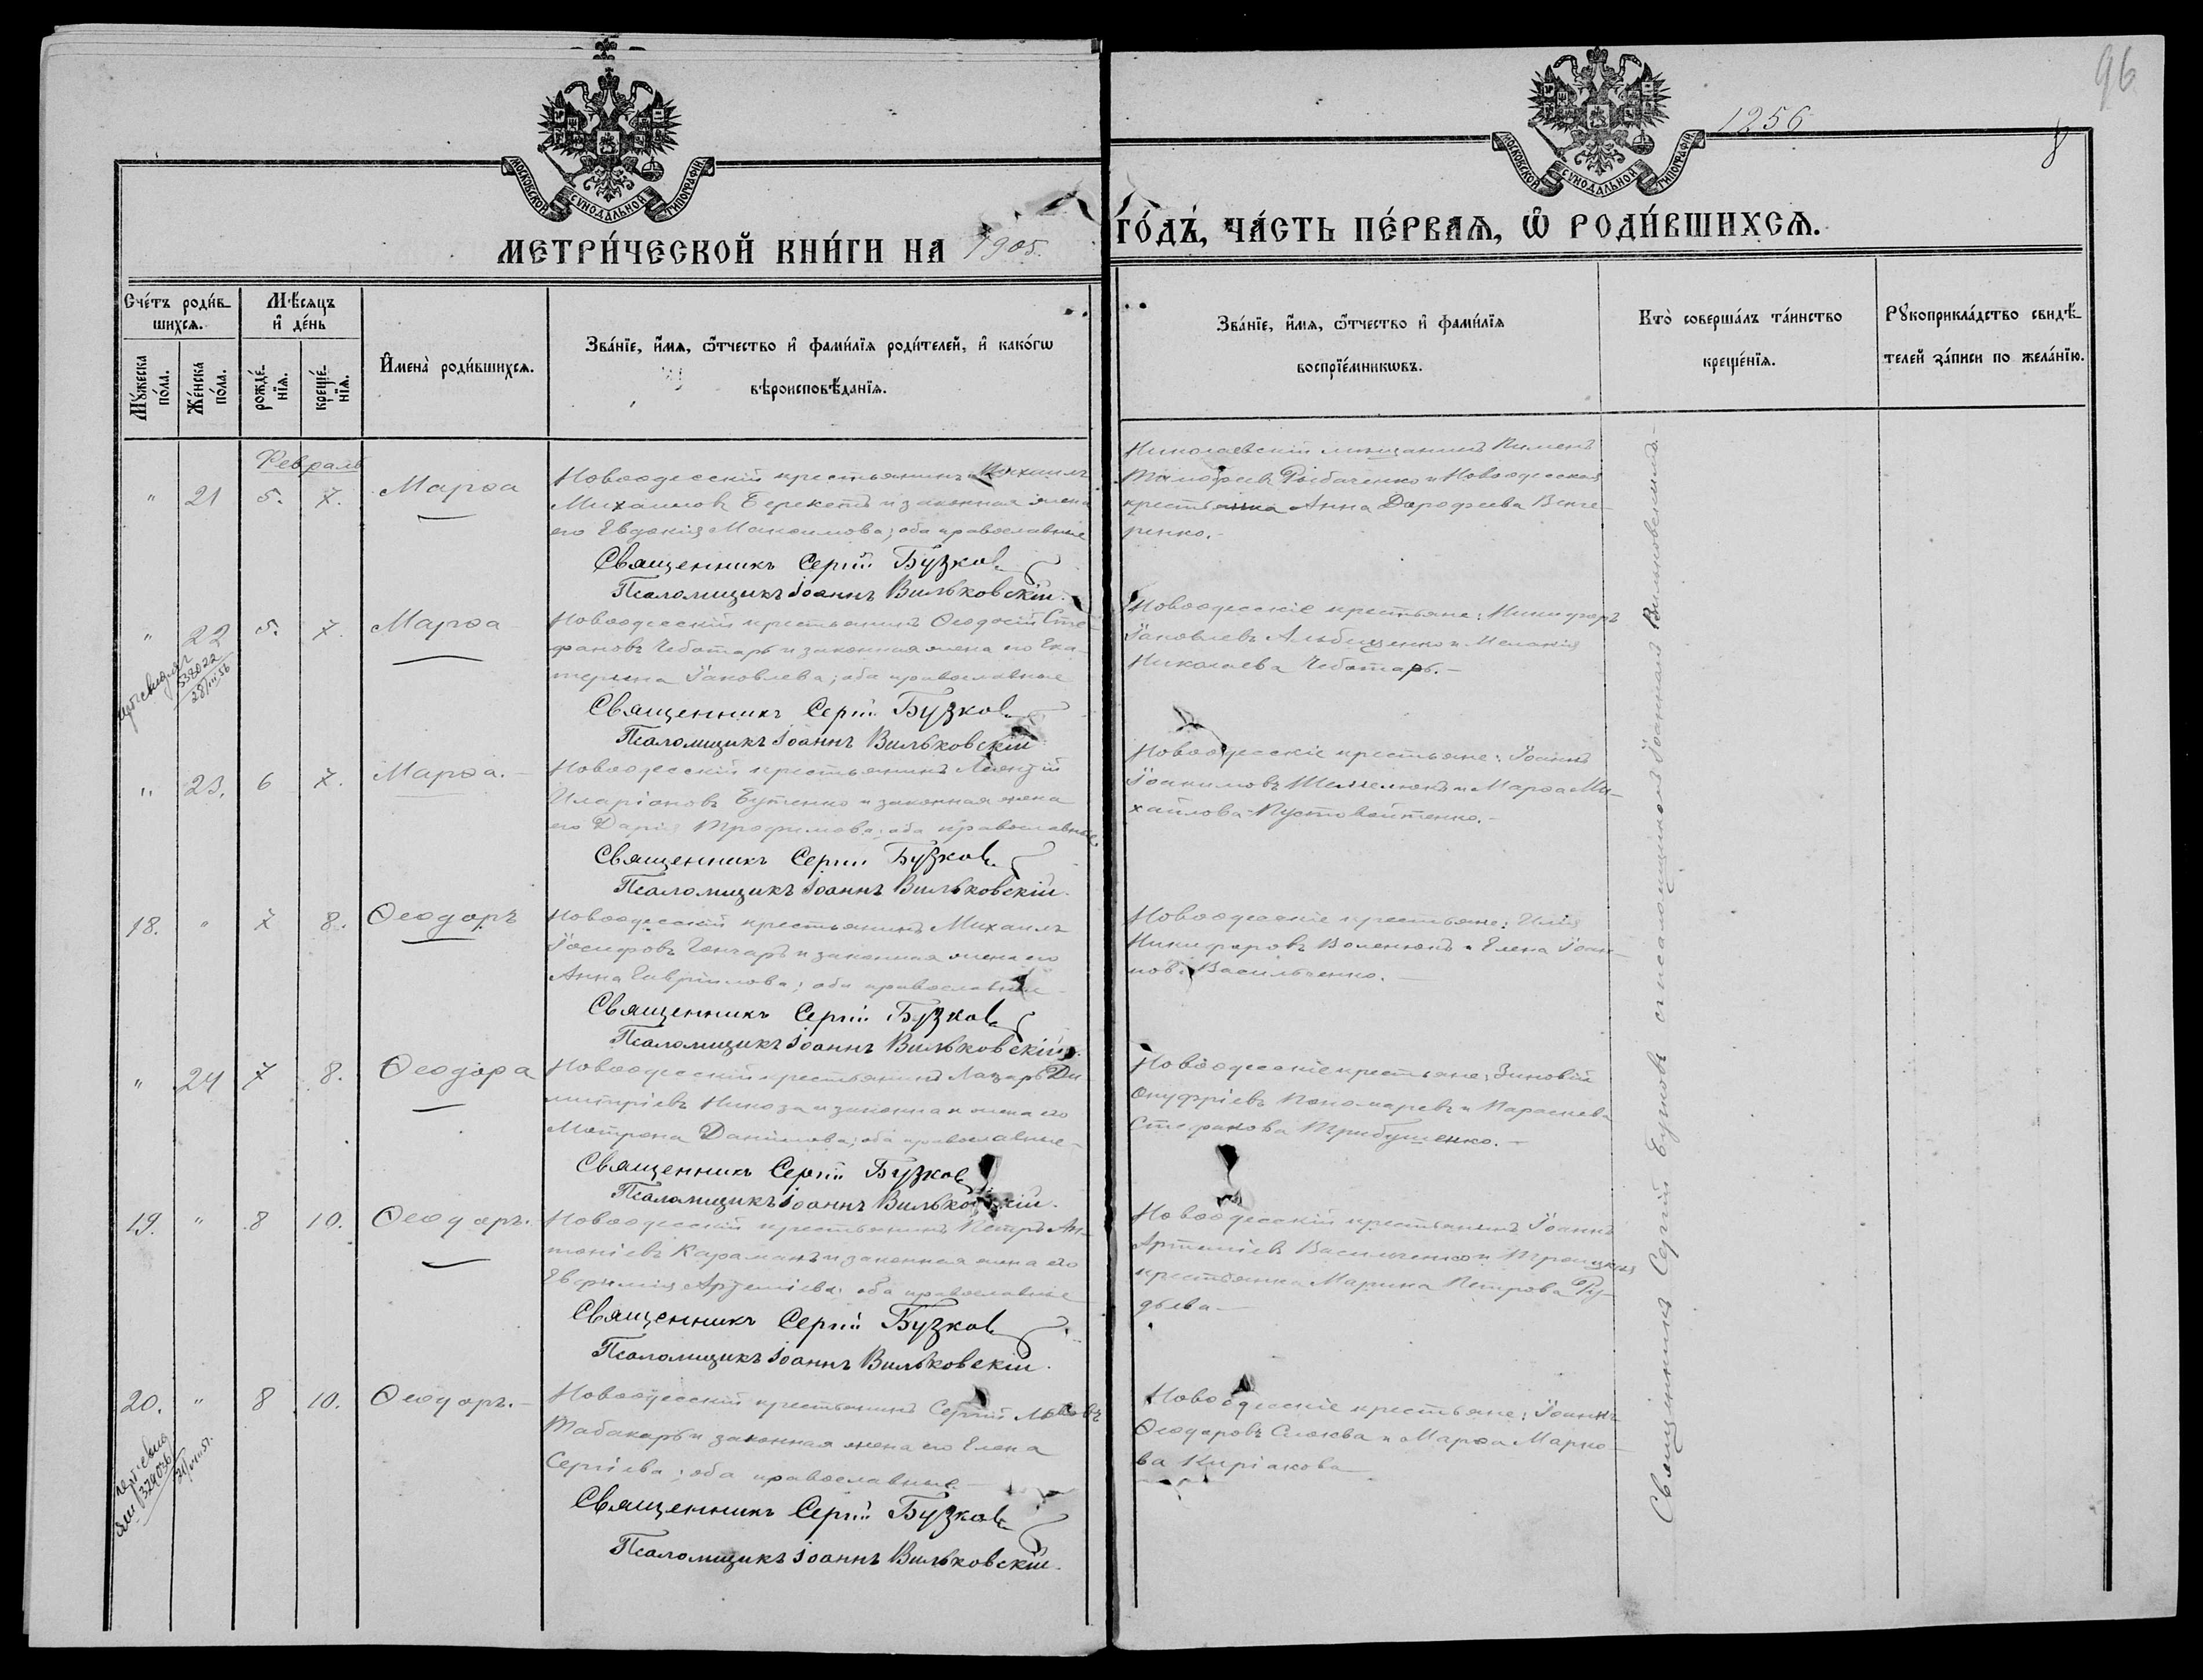 96
1256
8
МОСКОВСКОЙ СѴНОДАЛЬНОЙ ТИПОГРАФІИ
МОСКОВСКОЙ СѴНОДАЛЬНОЙ ТИПОГРАФІИ
МЕТРИ́ЧЕСКОЙ КНИ́ГИ НА 1905.
ГО́ДЪ, ЧА́СТЬ ПЕ́РВАѦ, Ѽ РОДИ́ВШИХСѦ.
Сче́тъ роди́в-
шихсѧ.
Мꙋ́жеска
по́ла.
Же́нска
по́ла.
Мѣ́сѧцъ
и҆ де́нь
рожде́-
нїѧ.
креще́-
нїѧ.
И҆мена̀ роди́вшихсѧ.
Зва́нїе, и҆́мѧ, ѻ҆́тчество и҆ фами́лїѧ роди́телей, и҆ како́гѡ
вѣроисповѣ́данїѧ.
Зва́нїе, и҆́мѧ, ѻ҆́тчество и҆ фами́лїѧ
воспрїе́мникѡвъ.
Кто̀ соверша́лъ та́инство
креще́нїѧ.
Рꙋкоприкла́дство свидѣ́-
телей за́писи по жела́нїю.
Февраль
" 21 5. 7. Марѳа
Новоодесскій крестьянинъ Михаилъ
Михаиловъ Берекетъ и законная жена
его Евдокія Максимова; оба православные
Священникъ Сергій Бузков
Псаломщикъ Іоаннъ Вильковскій.
Николаевскій мѣщанинъ Пименъ
Тимофеевъ Рыбаченко и Новоодесская
крестьянка Анна Дорофеева Венге-
ренко.-
" 22 5. 7. Марѳа
538022
28/III 56
Новоодесскій крестьянинъ Ѳеодосій Сте-
фановъ Чеботарь и законная жена его Ека-
терина Іаковлева; оба православные
Священникъ Сергій Бузков
Псаломщикъ Іоаннъ Вильковскій
Новоодесскіе крестьяне: Никифоръ
Іаковлевъ и Меланія
Николаева Чеботарь.-
" 23. 6 7. Марѳа.-
Новоодесскій крестьянинъ Леонтій
Иларіоновъ Бутенко и законная жена
его Дарія Трофимова; оба православные
Священникъ Сергій Бузков
Псаломщикъ Іоаннъ Вильковскій.
Новоодесскіе крестьяне: Іоаннъ
Іоакимовъ и Марѳа Ми-
хайлова Пустовойтенко.-
18. " 7 8. Ѳеодоръ
Новоодесскій крестьянинъ Михаилъ
Іосифовъ Гончаръ и законная жена его
Анна Гавріилова; оба православные
Священникъ Сергій Бузков
Псаломщикъ Іоаннъ Вильковскій.
Новоодесскіе крестьяне: Илія
Никифоровъ Воленюкъ и Елена Іоан-
нова Васильченко.-
" 24 7 8. Ѳеодора
Новоодесскій крестьянинъ Лазарь Ди-
митріевъ Никоза и законная жена его
Матрона Даніилова; оба православные-
Священникъ Сергій Бузков
Псаломщикъ Іоаннъ Вильковскій.
Новоодесскіе крестьяне: Зиновій
Онуфріевъ Пономаревъ и Параскева
Стефанова Трибушенко.-
19. " 8 10. Ѳеодоръ.
Новоодесскій крестьянинъ Петръ Ан-
тоніевъ Караманъ и законная жена его
Евфимія Артеміева; оба православные
Священникъ Сергій Бузков
Псаломщикъ Іоаннъ Вильковскій.
Новоодесскій крестьянинъ Іоаннъ
Артеміевъ Васильченко и Троицкая
крестьянка Марина Петрова Ру-
дьева-
20. " 8 10. Ѳеодоръ.-
Новоодесскій крестьянинъ Сергій
Табакарь и законная жена его Елена
Сергіева; оба православные-
Священникъ Сергій Бузков
Псаломщикъ Іоаннъ Вильковскій.
Новоодесскіе крестьяне: Іоаннъ
Ѳеодоровъ и Марѳа Марко-
ва Киріакова
Священникъ Сергій Бузковъ съ псаломщикомъ Іоанномъ Вильковскимъ.-